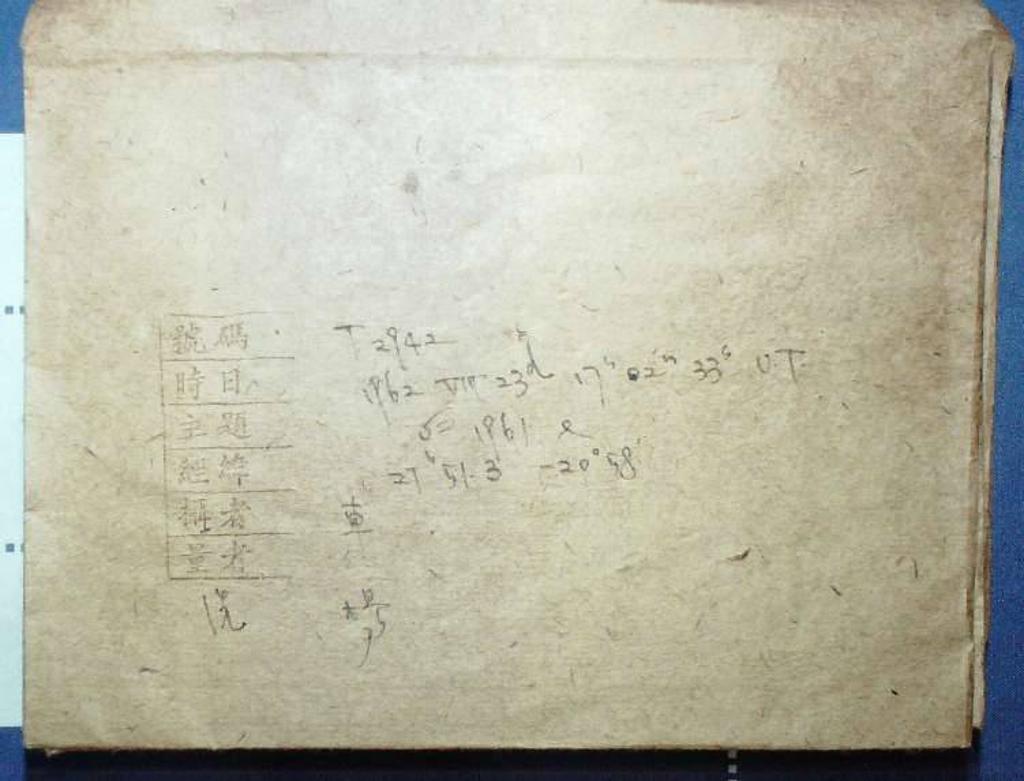 號碼 T 2942
時日 1962 VIII 23d 17h 02m 33s U.T.
主題 1961
經緯 27h 51.3 -20° 58'
攝者
量者